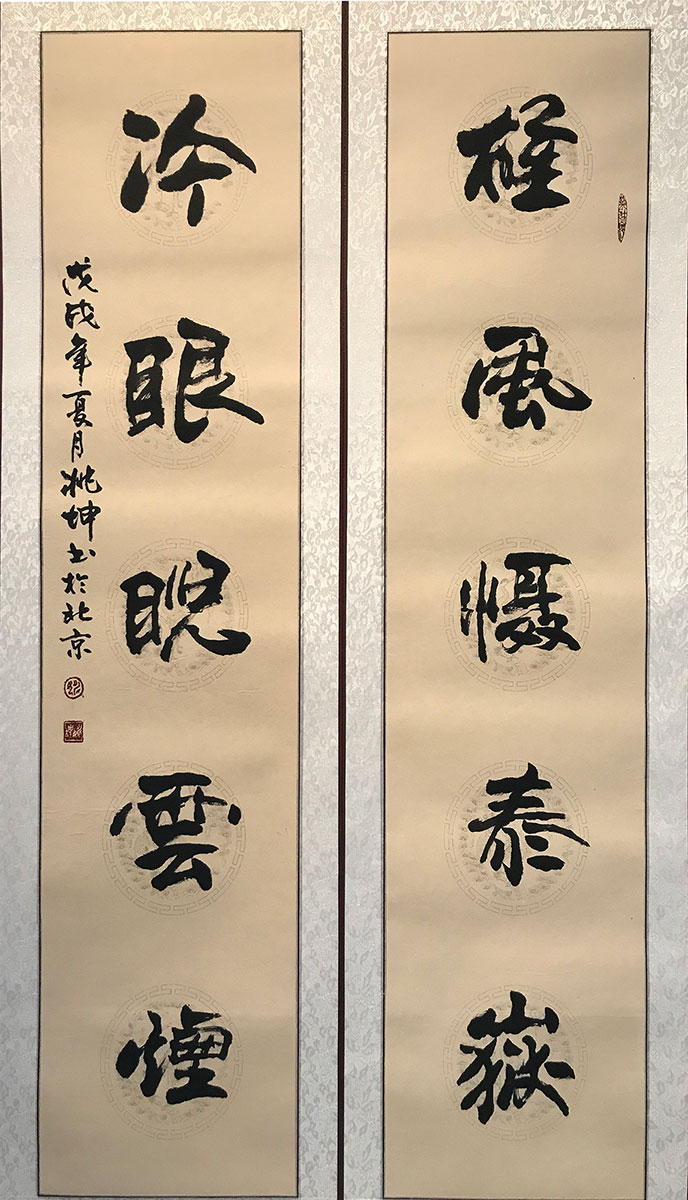 雄風慑泰嶽
冷眼睨雲煙
戊戌年夏月兆坤书於北京